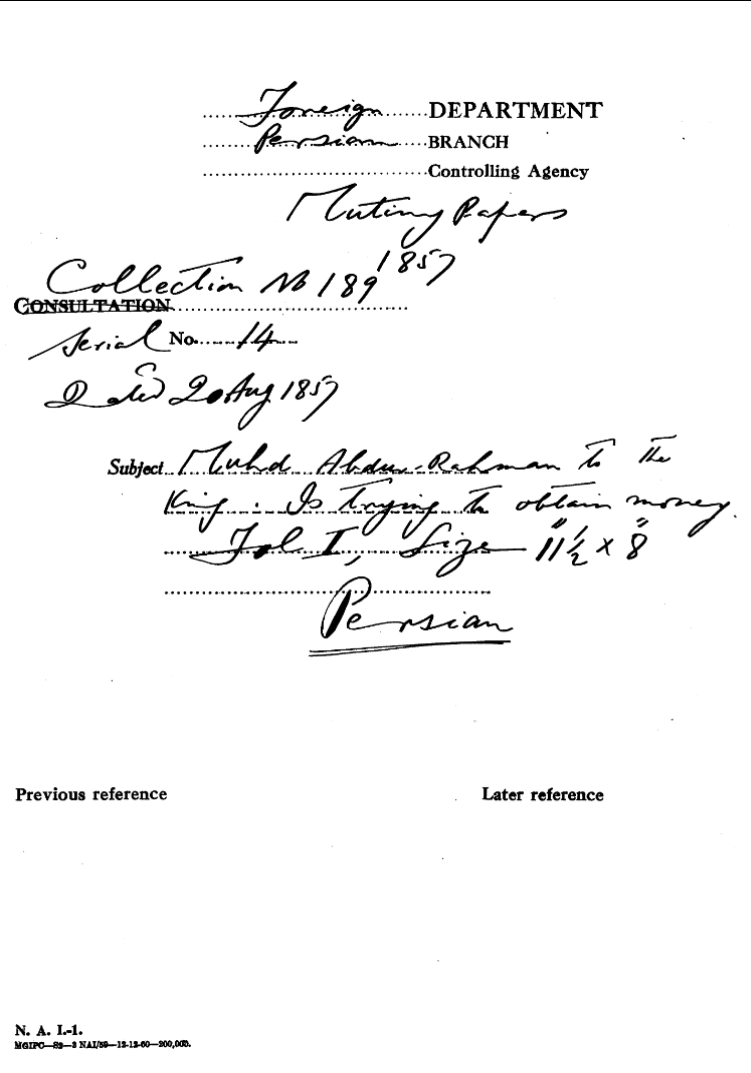 Foreign DEPARTMENT
Persian BRANCH
Controlling Agency
Mutiny Papers
1857
Collection No 189
CONSULTATION
Serial No. 14
Dated 20 Aug 1857
Subject Muhd Abdur-Rahman to the
King. Is trying to obtain money.
Fol I, Size 11½" x 8"
Persian
Previous reference
Later reference
N. A. I.-1.
MGIPC—S2—2 NAI/59—12-12-60—200,000.